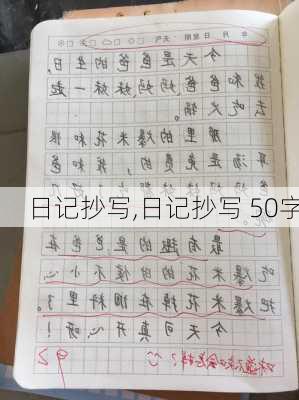 今天是爸爸的生日,
我和爸爸、妈妈、妹妹一起
去吃火锅。
那里的爆米花和银
耳汤是免费的,我和爸
日记抄写,日记抄写 50字
最有趣的是,爸爸在
吃爆米花的时候不小心
把爆米花掉在调料里了。
今天可真开心呀!